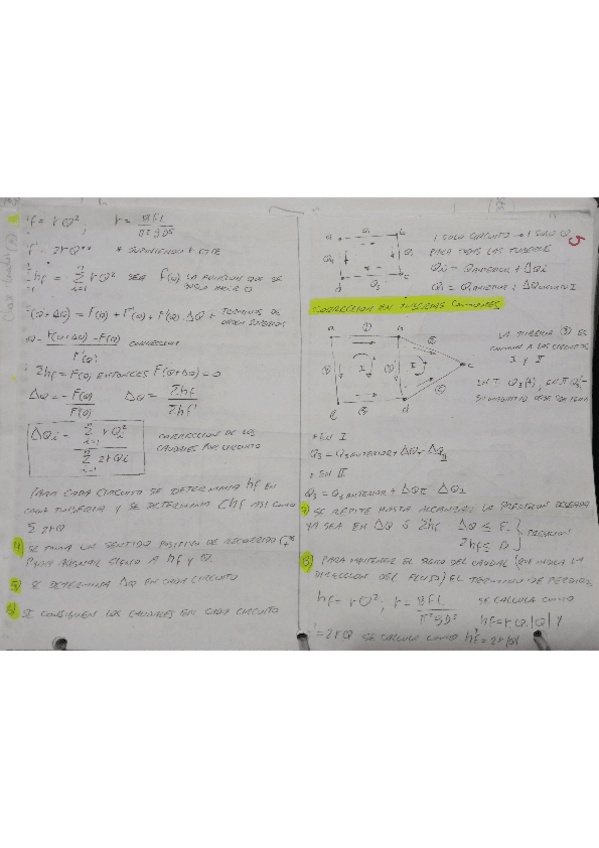 hf = r Q² ; r = 8fL / π²gD⁵
hf' = 2rQ ** * SUPONIENDO f CTE
Σhf = Σ rQ² SEA F(Q) LA FUNCION QUE SE
i=1
F(Q+ΔQ) = F(Q) + F'(Q) ΔQ + TERMINOS DE
ORDEN SUPERIOR
ΔQ = F(Q+ΔQ) - F(Q) / F'(Q)
Σhf = F(Q) ENTONCES F(Q+ΔQ) = 0
ΔQ = -F(Q) / F'(Q) ΔQ = Σhf / Σhf'
ΔQi = - Σ rQi² / Σ 2rQi CORRECCION DE LOS
CAUDALES POR CIRCUITO
PARA CADA CIRCUITO SE DETERMINA hf EN
CADA TUBERIA Y SE DETERMINAN Σhf ASI COMO
Σ 2rQ
4) SE TOMA UN SENTIDO POSITIVO DE RECORRIDO
PARA ASIGNAR SIGNO A hf Y Q.
5) SE DETERMINA ΔQ EN CADA CIRCUITO
6) SE CORRIGEN LOS CAUDALES EN CADA CIRCUITO
5
a Q1 b
Q4
d Q3 c
1 SOLO CIRCUITO → 1 SOLO Q
PARA TODAS LAS TUBERIAS
Qi = Q ANTERIOR + ΔQi
Q1 = Q ANTERIOR + ΔQ CIRCUITO I
CORRECCION EN TUBERIAS COMUNES
a b c d
I II
LA TUBERIA (3) ES
COMUN A LOS CIRCUITOS
I Y II
* EN I
Q3 = Q3 ANTERIOR + ΔQI - ΔQII
* EN II
Q3 = Q3 ANTERIOR + ΔQII - ΔQI
7) SE REPITE HASTA ALCANZAR LA PRECISION DESEADA
YA SEA EN ΔQ ó Σhf ΔQ ≤
Σhf ≤ PRECISION
8) PARA MANTENER EL SIGNO DEL CAUDAL (QUE INDICA LA
DIRECCION DEL FLUJO) EL TERMINO DE PERDIDAS
hf = rQ² ; r = 8fL / π²gD⁵ SE CALCULA COMO
hf = rQ|Q| Y
hf' = 2rQ SE CALCULA COMO hf' = 2r|Q|